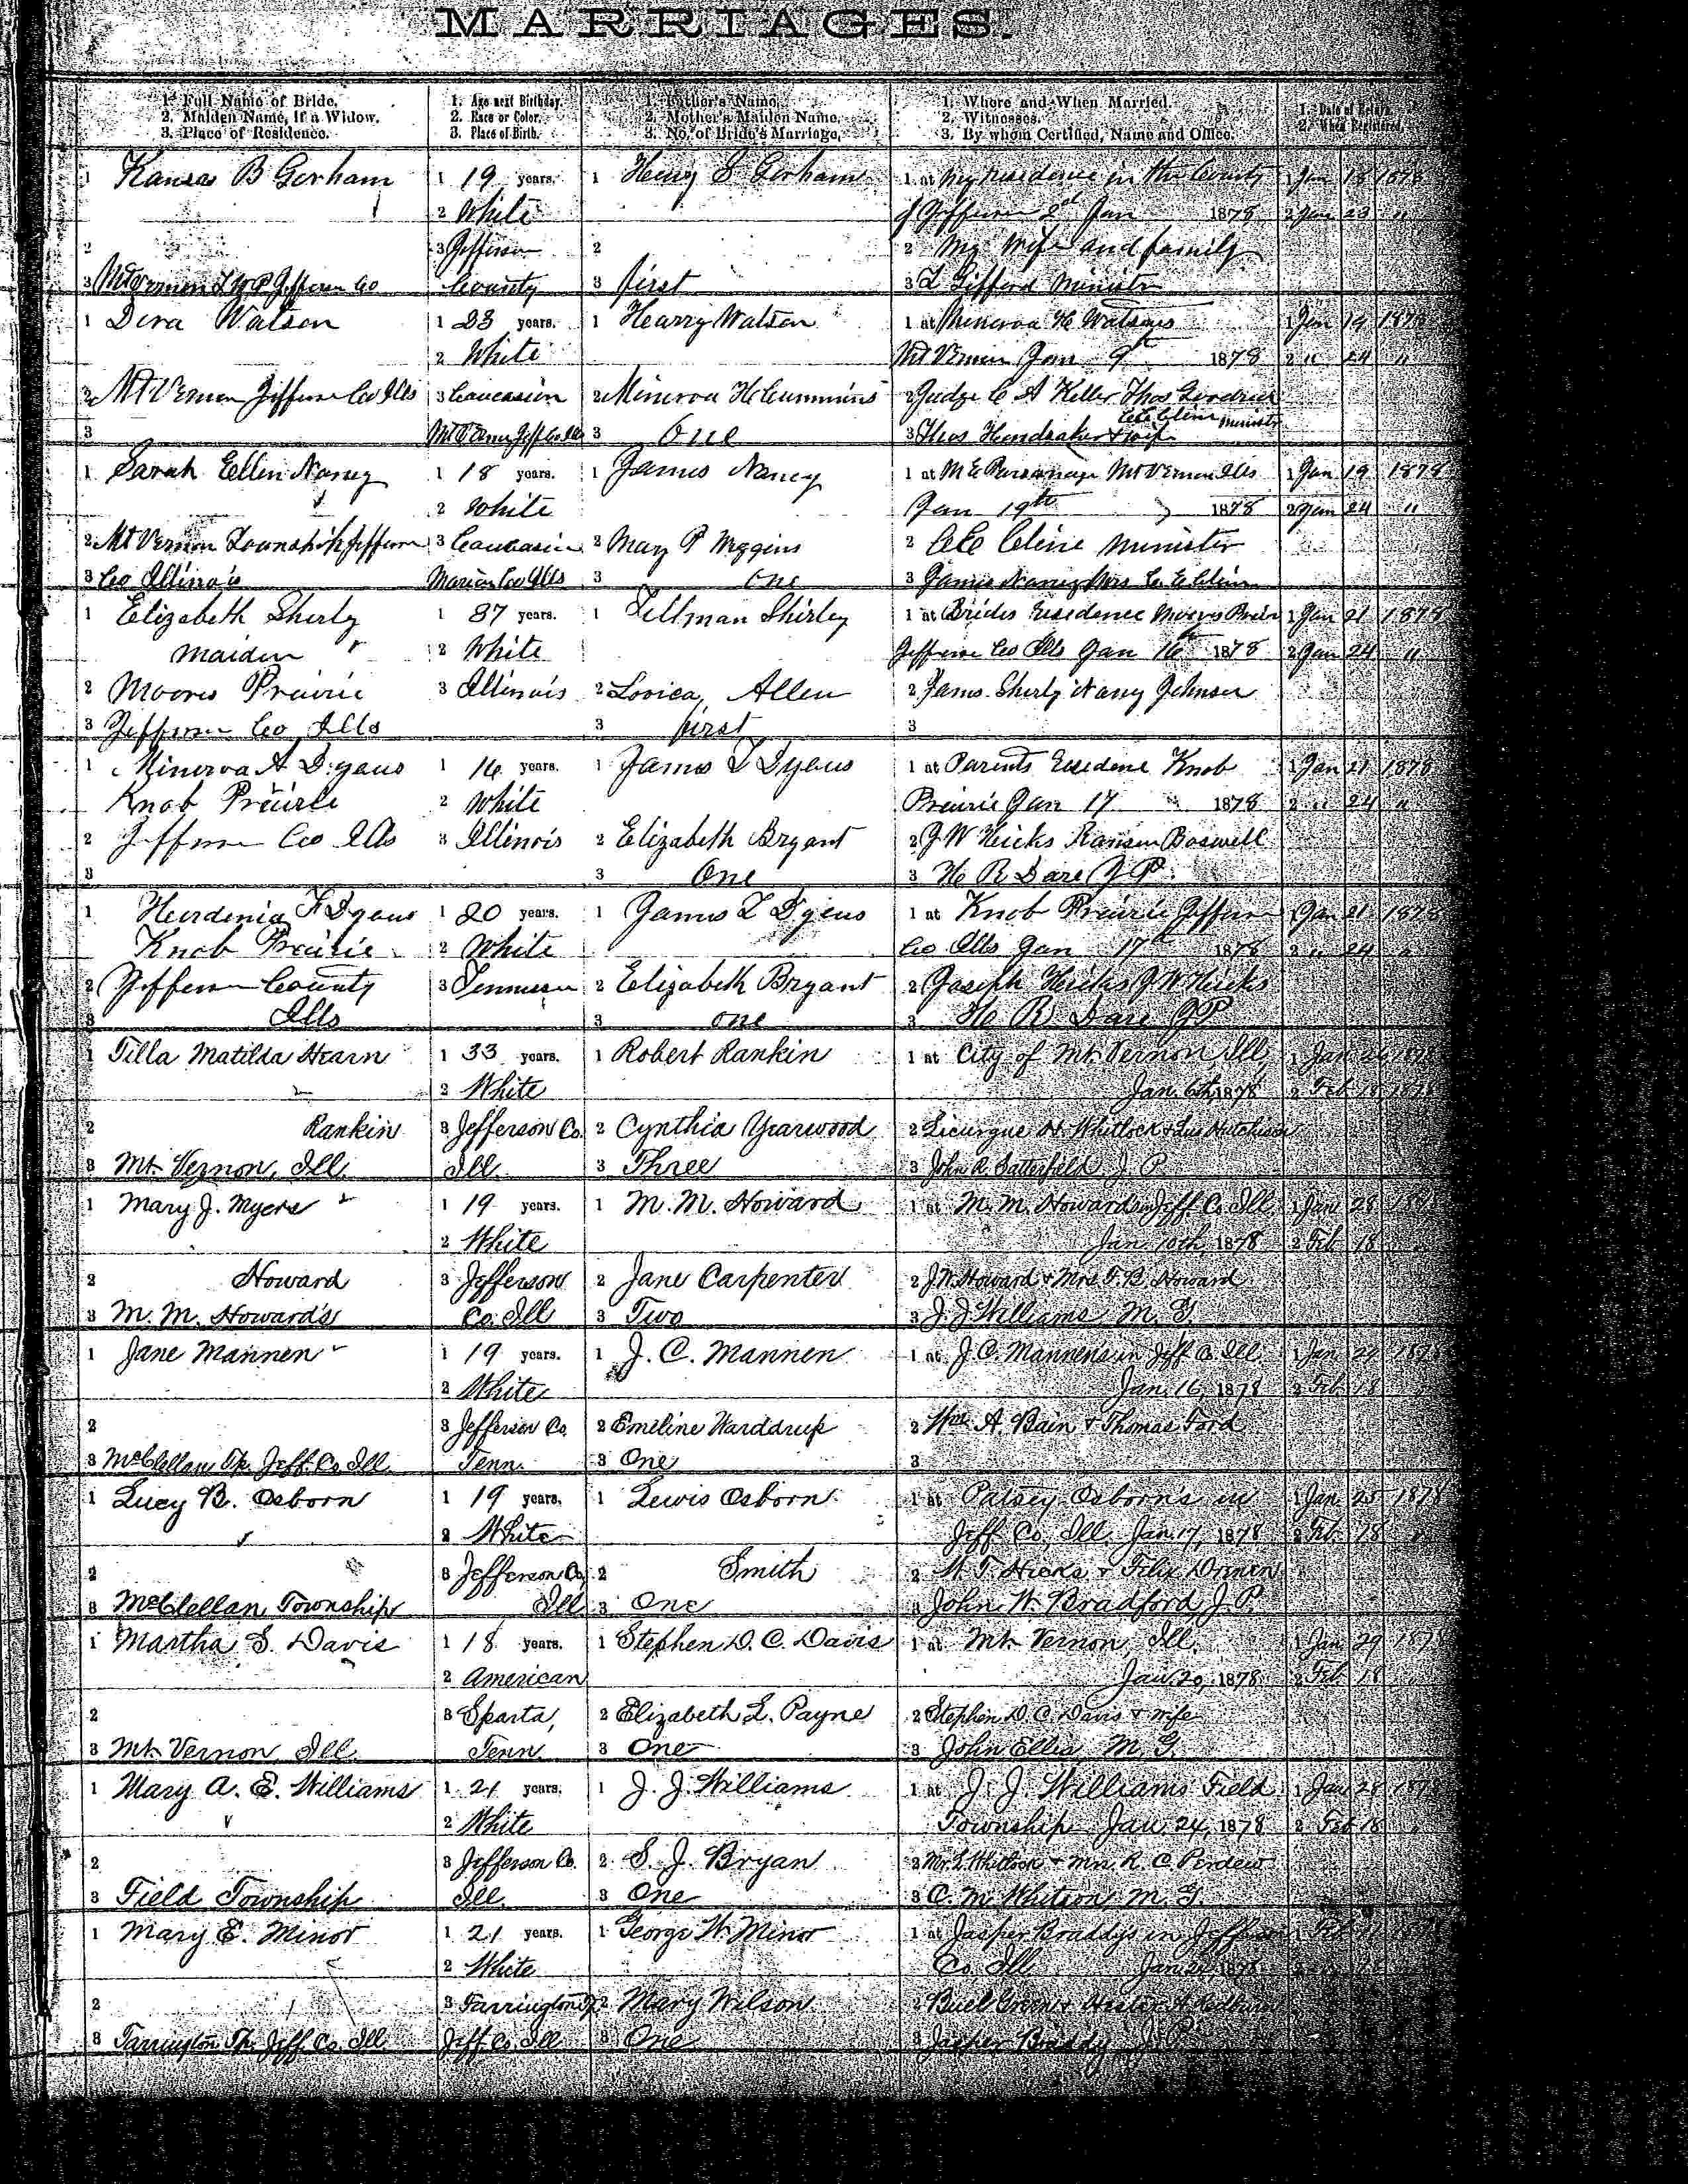 MARRIAGES.
1. Full Name of Bride. 2. Maiden Name, If a Widow. 3. Place of Residence.
1. Age next Birthday. 2. Race or Color. 3. Place of Birth.
1. Father's Name. 2. Mother's Maiden Name. 3. No. of Bride's Marriage.
1. Where and When Married. 2. Witnesses. 3. By whom Certified, Name and Office.
1. Date of Return. 2. When Registered.
1 Kansas B Gorham 1 19 years. 1 Henry S Gorham 1 at My Residence in the County 1 Jan 18 1878
2 White of Jefferson 2d Jan 1878 2 Jan 23 "
2 3 Jefferson 2 2 My Wife and family
3 Mt Vernon Jefferson Co County 3 first 3 Gifford Minister
1 Dora Watson 1 23 years. 1 Hearry Watson 1 at Minerva H Watsons 1 Jan 19 1878
2 White Mt Vernon Jan 9th 1878 2 " 24 "
2 Mt Vernon Jefferson Co Ills 3 Caucasian 2 Minerva H Cummins 2 Judge C A Keller Thos
3 Mt Vernon Jeff Co Ills 3 One 3 Thos & wife Cline minister
1 Sarah Ellen Nancy 1 18 years. 1 James Nancy 1 at M E Parsonage Mt Vernon Ills 1 Jan 19 1878
2 White Jan 19th 1878 2 Jan 24 "
2 Mt Vernon Township Jefferson 3 Caucasian 2 Mary P Wiggins 2 Cline Minister
3 Co Illinois Marion Co Ills 3 One 3 James Nancy Mrs C E Cline
1 Elizabeth Sherly 1 37 years. 1 Tillman Shirley 1 at Brides Residence Moores Prair 1 Jan 21 1878
maiden 2 White Jefferson Co Ills Jan 16th 1878 2 Jan 24 "
2 Moores Prairie 3 Illinois 2 Lovica Allen 2 James Sherly Nancy Johnson
3 Jefferson Co Ills 3 first 3
1 Minerva A Dyaus 1 16 years. 1 James L Dyaus 1 at Parents Residence Knob 1 Jan 21 1878
Knob Prairie 2 White Prairie Jan 17 1878 2 " 24 "
2 Jefferson Co Ills 3 Illinois 2 Elizabeth Bryant 2 J W Hicks Ransom Boswell
3 3 One 3 H R Dare J P
1 F Dyaus 1 20 years. 1 James L Dyeus 1 at Knob Prairie Jefferson 1 Jan 21 1878
Knob Prairie 2 White Co Ills Jan 17th 1878 2 " 24 "
2 Jefferson County 3 Tennessee 2 Elizabeth Bryant 2 Joseph Hicks J W Hicks
3 Ills 3 one 3 H R Dare J P
1 Tilla Matilda Hearn 1 33 years. 1 Robert Rankin 1 at City of Mt. Vernon, Ill 1 Jan 26 1878
2 White Jan. 6th, 1878 2 Feb 18 1878
2 Rankin 3 Jefferson Co. 2 Cynthia Yearwood 2 Licurgue H. Whitlock & Hutchison
3 Mt. Vernon, Ill. Ill. 3 Three 3 John R. Satterfield J. P.
1 Mary J. Myers 1 19 years. 1 M. M. Howard 1 at M. M. Howard's in Jeff Co. Ill 1 Jan 28 1878
2 White Jan. 10th, 1878 2 Feb 18 "
2 Howard 3 Jefferson 2 Jane Carpenter 2 J. W. Howard & Mrs. F. B. Howard
3 M. M. Howard's Co. Ill 3 Two 3 J. J. Williams M. G.
1 Jane Mannen 1 19 years. 1 J. C. Mannen 1 at J. C. Mannens in Jeff Co. Ill. 1 Jan 24 1878
2 White Jan. 16, 1878 2 Feb 18
2 3 Jefferson Co. 2 Emeline Warddrup 2 Wm A. Bain & Thomas Ford
3 McClellan Tp. Jeff. Co. Ill. Tenn. 3 One 3
1 Lucy B. Osborn 1 19 years. 1 Lewis Osborn 1 at Patsey Osborn's in 1 Jan 25 1878
2 White Jeff Co. Ill. Jan. 17, 1878 2 Feb. 18 "
2 3 Jefferson Co. 2 Smith 2 W. T. Hicks & Felix
3 McClellan Township Ill 3 One 3 John W. Bradford J. P.
1 Martha S. Davis 1 18 years. 1 Stephen D. C. Davis 1 at Mt. Vernon, Ill. 1 Jan 29 1878
2 American Jan. 20, 1878 2 Feb 18
2 3 Sparta, 2 Elizabeth L. Payne 2 Stephen D. C. Davis & wife
3 Mt. Vernon Ill. Tenn 3 One 3 John Ellis M. G.
1 Mary A. E. Williams 1 21 years. 1 J. J. Williams 1 at J. J. Williams Field 1 Jan 28 1878
2 White Township Jan 24, 1878 2 Feb 18 "
2 3 Jefferson Co. 2 S. J. Bryan 2 & R. C. Perdew
3 Field Township Ill. 3 One 3 C. M. Whitson M. G.
1 Mary E. Minor 1 21 years. 1 George W. Minor 1 at Jasper Braddy's in Jefferson 1 Feb 1878
2 White Co. Ill Jan. 1878 2 18
2 3 Farrington Tp 2 Mary Wilson 2 Buel Green & Hester A
3 Farrington Tp. Jeff. Co. Ill Jeff Co. Ill 3 One 3 Jasper Braddy J. P.